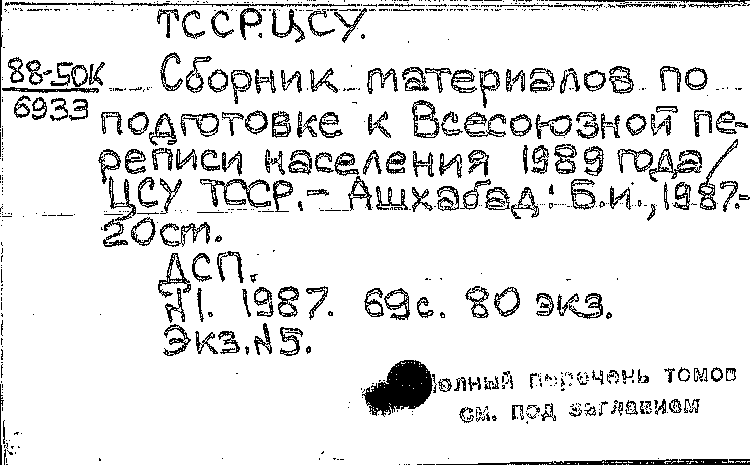 ТССР. ЦСУ.
88-50К
6933
Сборник материалов по
подготовке к Всесоюзной пе-
реписи населения 1989 года /
ЦСУ ТССР. – Ашхабад: Б.и., 1987. -
20 см.
ДСП.
N1. 1987. 69с. 80 экз.
Экз. N5.
Полный перечень томов
см. под заглавием